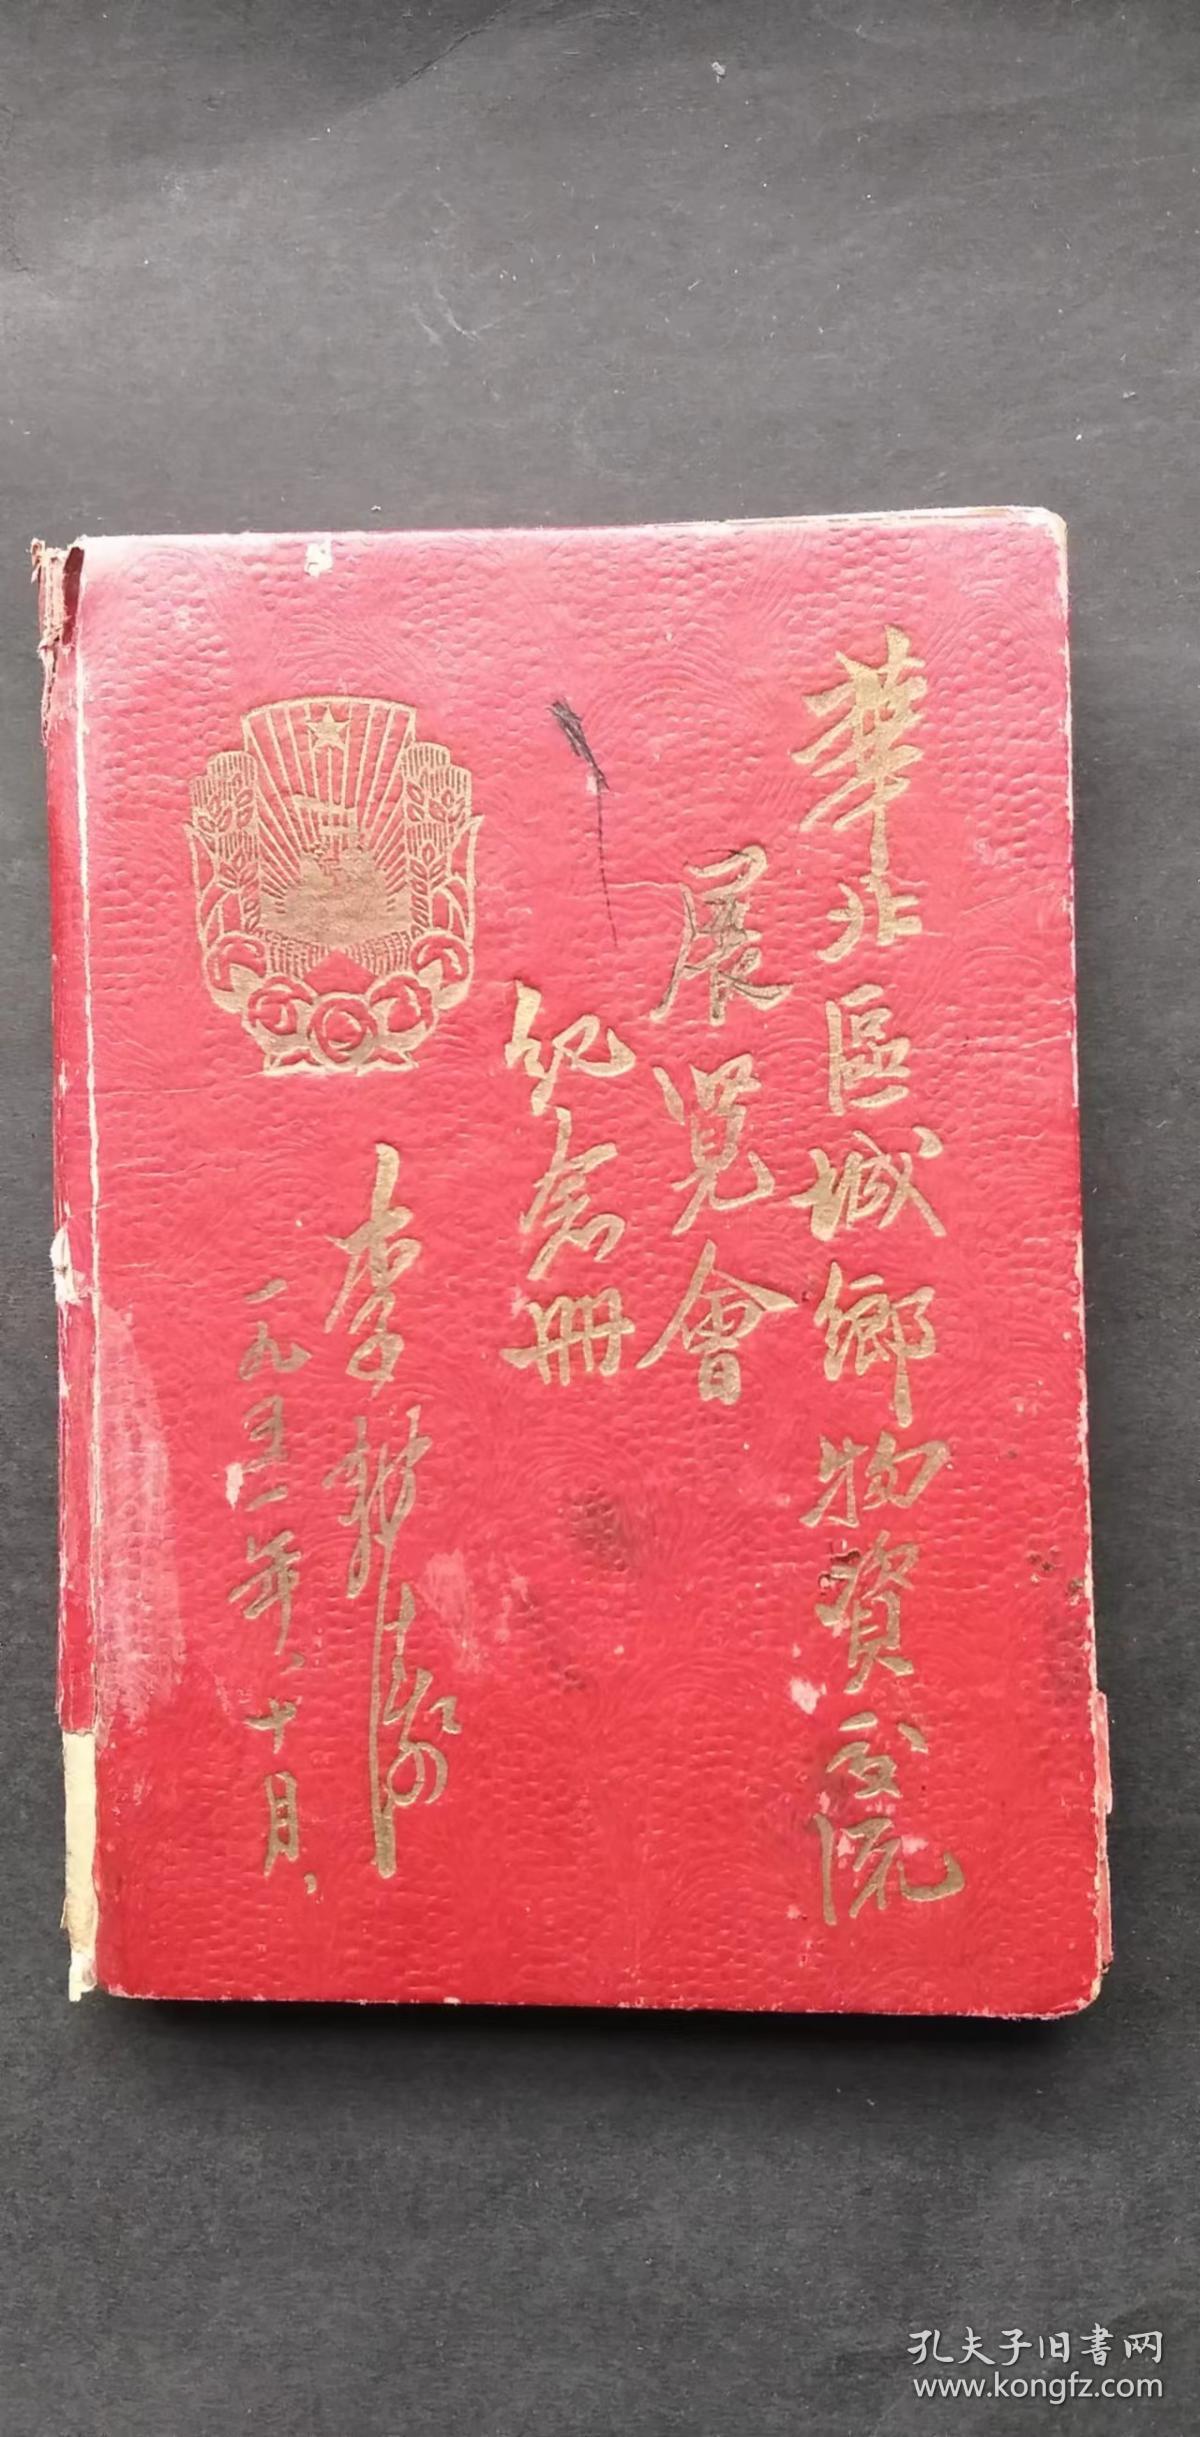 華北區城鄉物資交流
展覽會
紀念冊
李
一九五一年、十月、
孔夫子旧書网
www.kongfz.com